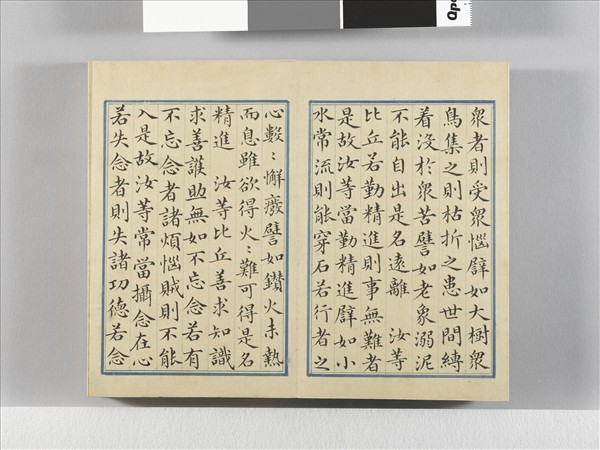 衆者則受衆惱譬如大樹衆
鳥集之則枯折之患世間縛
着没於衆苦譬如老象溺泥
不能自出是名遠離 汝等
比丘若勤精進則事無難者
是故汝等當勤精進譬如小
水常流則能穿石若行者之
心數〻懈癈譬如鑚火未熱
而息雖欲得火〻難可得是名
精進 汝等比丘善求知識
求善護助無如不忘念若有
不忘念者諸煩惱賊則不能
入是故汝等常當攝念在心
若失念者則失諸功德若念